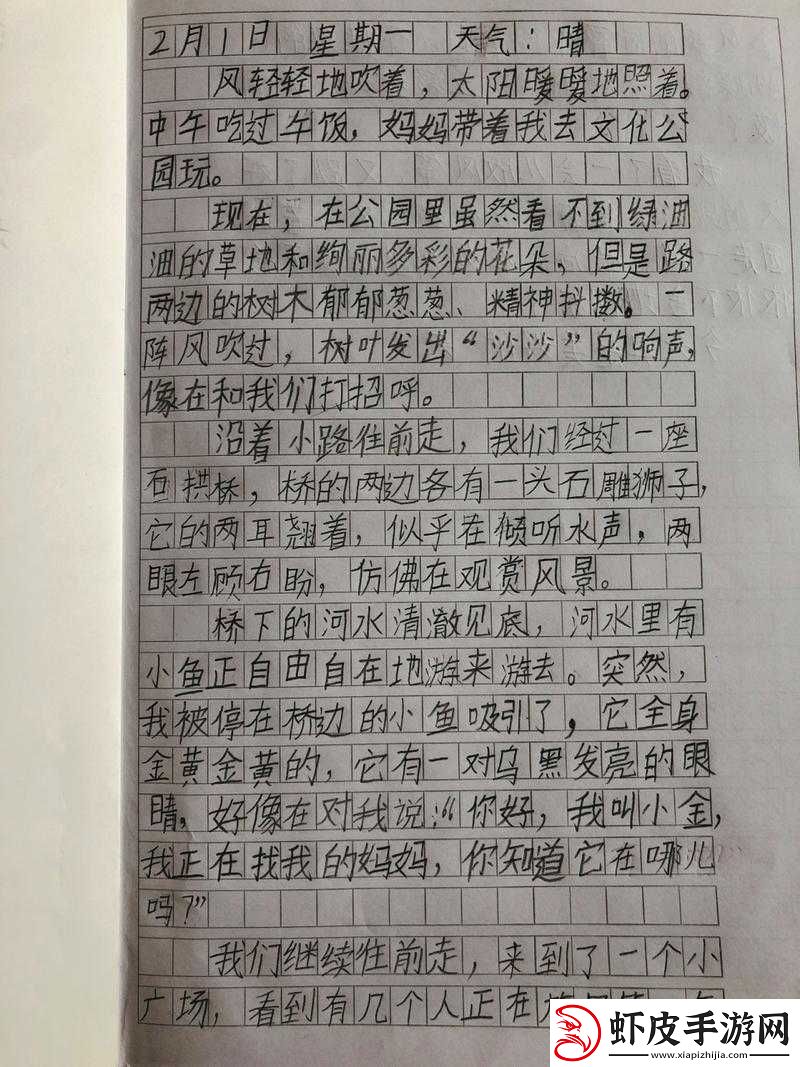 2月1日 星期一 天气：晴
风轻轻地吹着，太阳暖暖地照着。
中午吃过午饭，妈妈带着我去文化公
园玩。
现在，在公园里虽然看不到绿油
油的草地和绚丽多彩的花朵，但是路
两边的树木郁郁葱葱、精神抖擞。一
阵风吹过，树叶发出“沙沙”的响声，
像在和我们打招呼。
沿着小路往前走，我们经过一座
石拱桥，桥的两边各有一头石雕狮子，
它的两耳翘着，似乎在倾听水声，两
眼左顾右盼，仿佛在观赏风景。
桥下的河水清澈见底，河水里有
小鱼正自由自在地游来游去。突然，
我被停在桥边的小鱼吸引了，它全身
金黄金黄的，它有一对乌黑发亮的眼
睛，好像在对我说：“你好，我叫小金，
我正在找我的妈妈，你知道它在哪儿
吗？”
我们继续往前走，来到了一个小
广场，看到有几个人正在
虾皮手游网
www.xiapizhijia.com